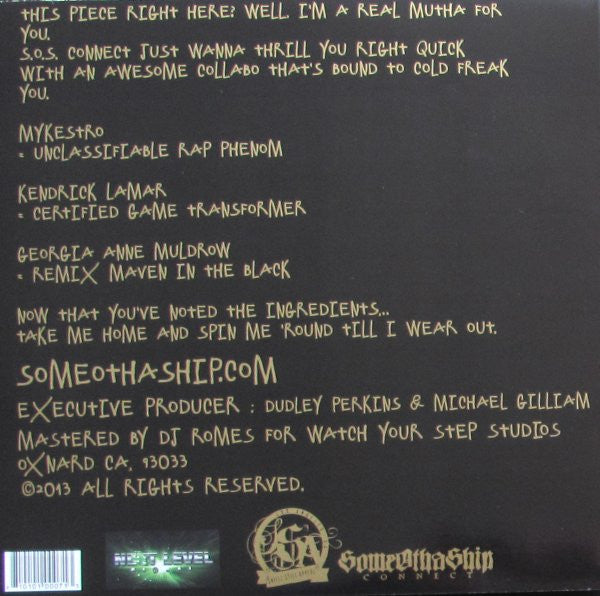 THIS PIECE RIGHT HERE? WELL. I'M A REAL MUTHA FOR
YOU.
S.O.S. CONNECT JUST WANNA THRILL YOU RIGHT QUICK
WITH AN AWESOME COLLABO THAT'S BOUND TO COLD FREAK
YOU.
MYKESTRO
= UNCLASSIFIABLE RAP PHENOM
KENDRICK LAMAR
= CERTIFIED GAME TRANSFORMER
GEORGIA ANNE MULDROW
= REMIX MAVEN IN THE BLACK
NOW THAT YOU'VE NOTED THE INGREDIENTS...
TAKE ME HOME AND SPIN ME 'ROUND TILL I WEAR OUT.
SOMEOTHASHIP.COM
EXECUTIVE PRODUCER : DUDLEY PERKINS & MICHAEL GILLIAM
MASTERED BY DJ ROMES FOR WATCH YOUR STEP STUDIOS
OXNARD CA, 93033
©2013 ALL RIGHTS RESERVED.
NEXT LEVEL
SomeOthaShip
CONNECT